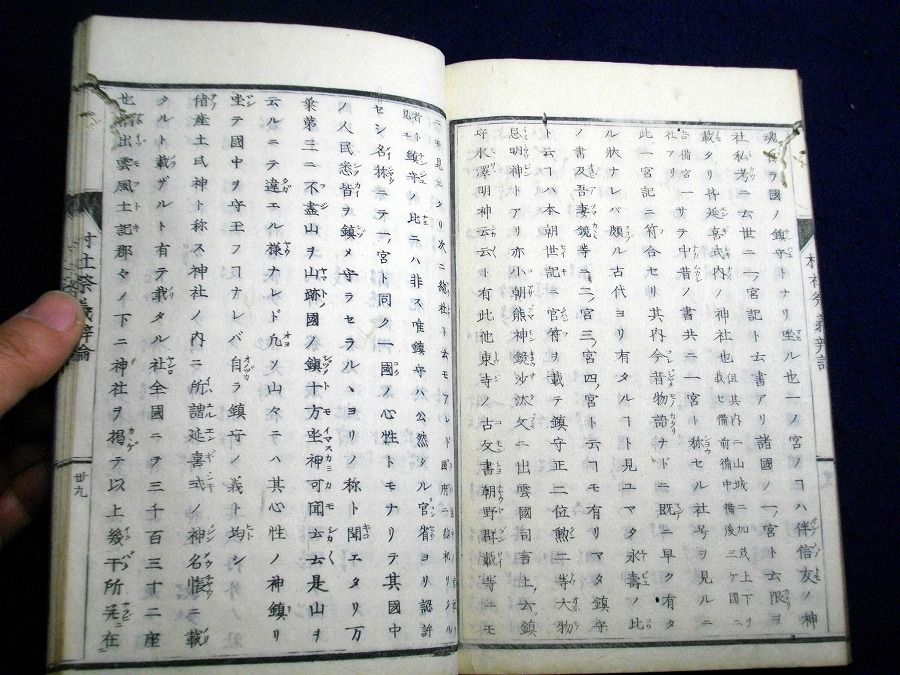 魂ヲ國ノ鎮守トナリ坐ル也一ノ宮ノヿハ伴信友ノ神
社私考ニ云世ニ一ノ宮記ト云書アリ諸國ノ一ノ宮ト云限ヲ
載タリ皆延喜式内ノ神社也但其内ニ山城ニ加茂上下ヲ載セ備前備中備後三ケ國ニ
吉備宮一社アリサテ中昔ノ書共ニ一宮ト称セル社号ヲ見ルニ
此一宮記ニ符合セリ其内今昔物語ナドニ既ニ早ク有タ
ル状ナレバ頗ル古代ヨリ有タルヿト見ユマタ永壽ノ比
ノ書及吾妻鏡等ニ二ノ宮三ノ宮四ノ宮ト云ヿモ有リマタ鎮守
ト云ヿハ本朝世記ニ官符ヲ載テ鎮守正二位勲二等大物
忌明神トアリ亦小朝熊神鏡沙汰文ニ出雲國司言上云鎮
守水澤明神云云ト有此他東寺ノ古文書朝野群載等ニモ
ニモ見エタリ次ニ総社ト云モ
者ト見エ鎮守ノ比ニハ非ス唯鎮守ハ公然タル官省ヨリ認許
セシ名称ニテ一ノ宮ト同ク一國ノ心性トモナリテ其國中
ノ人民悉皆ヲ鎮メ守ラセラルヽヨリノ称ト聞エタリ万
葉第三ニ不盡山ヲ山跡國ノ鎮十方坐神可聞云云是山ヲ
云ルニテ違エル様ナレド凡ソ山々ニハ其心性ノ神鎮リ
坐テ國中ヲ守玉フヿナレバ自ラ鎮守ノ義ト均シ
偖産土氏神ト称ス神社ノ内ニ所謂延喜式ノ神名帳ニ載
タルト載ザルト有テ載タル社全國ニテ三千百三十二座
也偖出雲風土記郡々ノ下ニ神社ヲ掲テ以上幾干所是在
村社祭義辨論
廿九